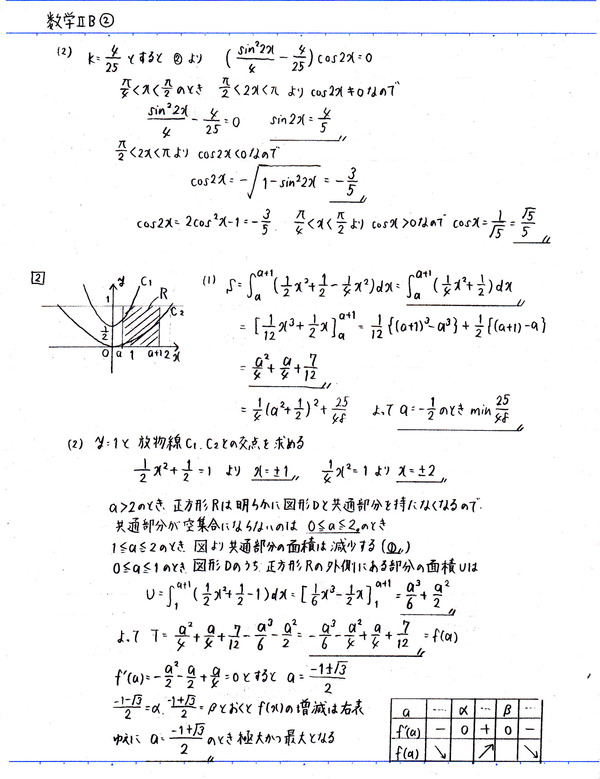 数学ⅡB②
(2) k=4/25 とすると ②より (sin²2x/4 - 4/25)cos2x=0
π/4<x<π/2のとき π/2<2x<π より cos2x≠0なので
sin²2x/4 - 4/25=0 sin2x=4/5
π/2<2x<πより cos2x<0なので
cos2x=-√(1-sin²2x)=-3/5
cos2x=2cos²x-1=-3/5 π/4<x<π/2より cosx>0なので cosx=1/√5=√5/5
2 y C₁ R C₂ 1 1/2 0 a 1 a+1 2 x
(1) S=∫ₐᵃ⁺¹(1/2x²+1/2-1/4x²)dx=∫ₐᵃ⁺¹(1/4x²+1/2)dx
=[1/12x³+1/2x]ₐᵃ⁺¹=1/12{(a+1)³-a³}+1/2{(a+1)-a}
=a²/4+a/4+7/12
=1/4(a²+1/2)²+25/48 よって a=-1/2のとき min 25/48
(2) y=1と放物線C₁.C₂との交点を求める
1/2x²+1/2=1 より x=±1 1/4x²=1より x=±2
a>2のとき. 正方形Rは明らかに図形Dと共通部分を持たなくなるので.
共通部分が空集合にならないのは 0≦a≦2のとき
1≦a≦2のとき. 図より共通部分の面積は減少する(①)
0≦a≦1のとき. 図形Dのうち. 正方形Rの外側にある部分の面積Uは
U=∫₁ᵃ⁺¹(1/2x²+1/2-1)dx=[1/6x³-1/2x]₁ᵃ⁺¹=a³/6+a²/2
よって T=a²/4+a/4+7/12-a³/6-a²/2=-a³/6-a²/4+a/4+7/12=f(a)
f'(a)=-a²/2-a/2+a/4=0とすると a=(-1±√3)/2
(-1-√3)/2=α. (-1+√3)/2=βとおくと f(x)の増減は右表
ゆえに a=(-1+√3)/2のとき極大かつ最大となる
a … α … β …
f'(a) - 0 + 0 -
f(a) ↘ ↗ ↘